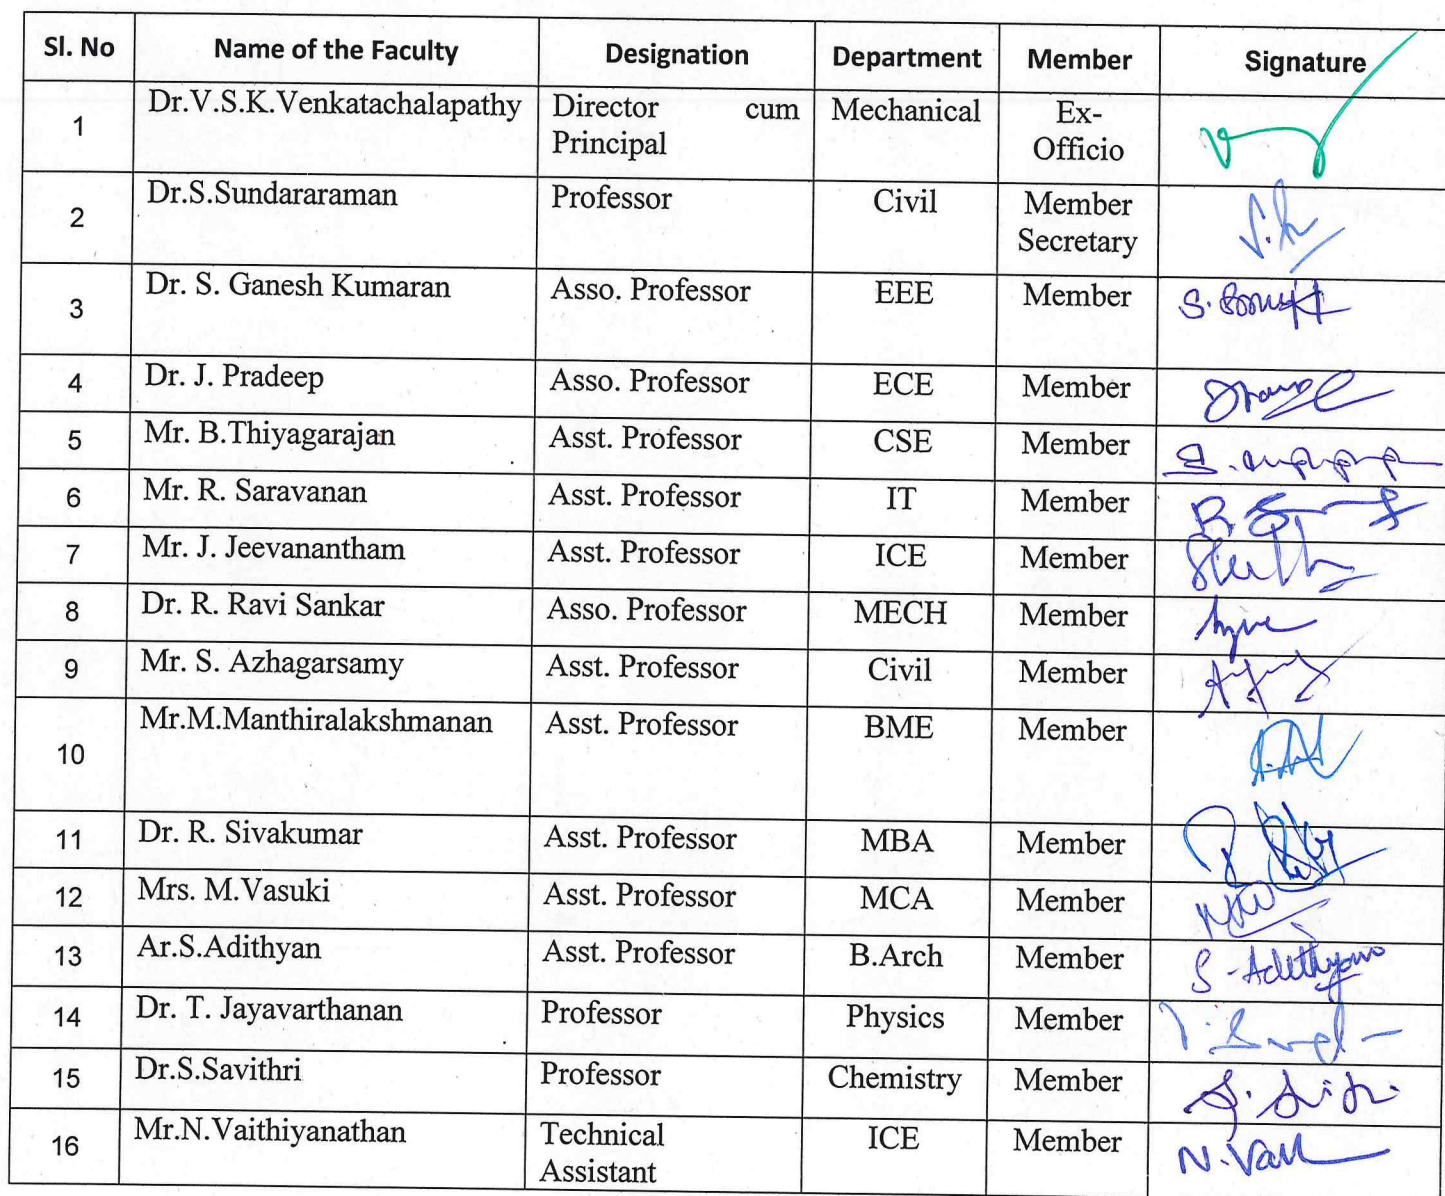 Sl. No Name of the Faculty Designation Department Member Signature
1 Dr.V.S.K.Venkatachalapathy Director cum Mechanical Ex-
Principal Officio
2 Dr.S.Sundararaman Professor Civil Member
Secretary
3 Dr. S. Ganesh Kumaran Asso. Professor EEE Member
4 Dr. J. Pradeep Asso. Professor ECE Member
5 Mr. B.Thiyagarajan Asst. Professor CSE Member
6 Mr. R. Saravanan Asst. Professor IT Member
7 Mr. J. Jeevanantham Asst. Professor ICE Member
8 Dr. R. Ravi Sankar Asso. Professor MECH Member
9 Mr. S. Azhagarsamy Asst. Professor Civil Member
10 Mr.M.Manthiralakshmanan Asst. Professor BME Member
11 Dr. R. Sivakumar Asst. Professor MBA Member
12 Mrs. M.Vasuki Asst. Professor MCA Member
13 Ar.S.Adithyan Asst. Professor B.Arch Member
14 Dr. T. Jayavarthanan Professor Physics Member
15 Dr.S.Savithri Professor Chemistry Member
16 Mr.N.Vaithiyanathan Technical ICE Member
Assistant